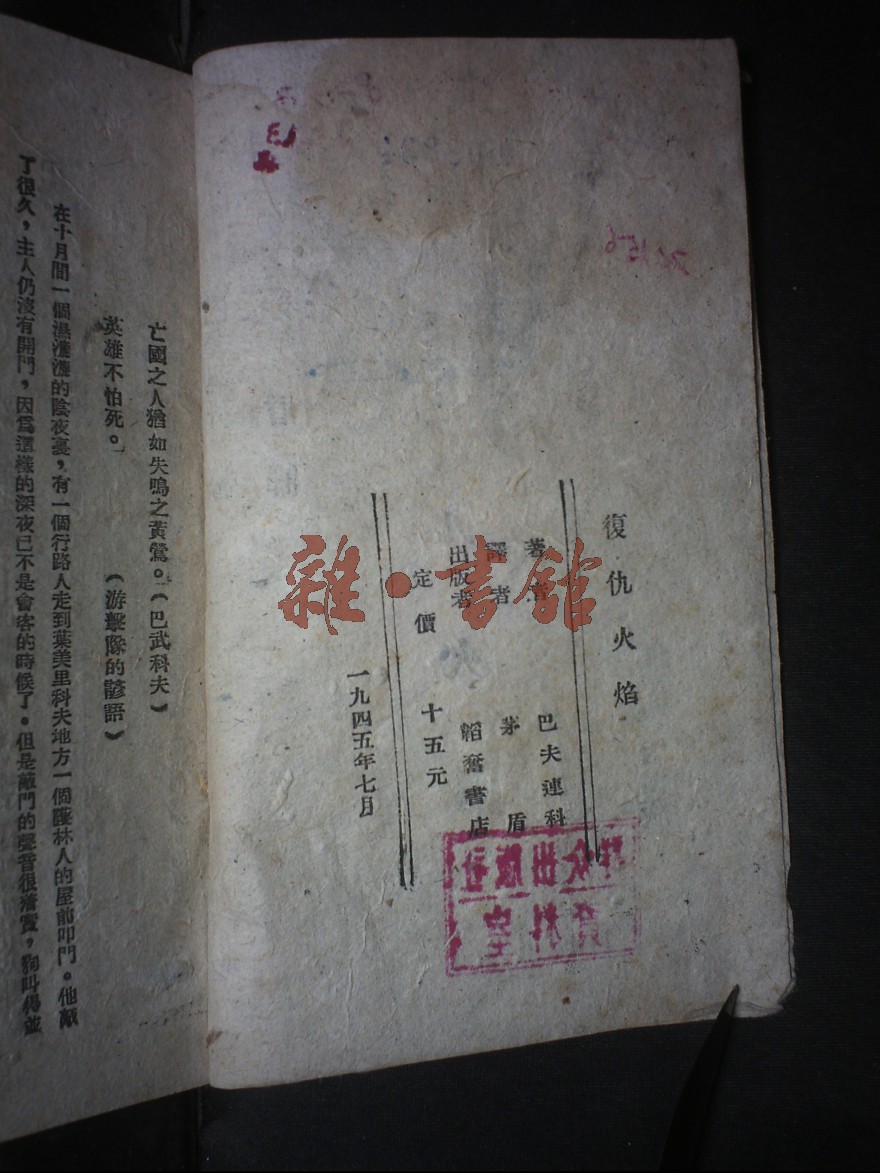 復仇火焰
著者 巴夫連科
譯者 茅盾
出版者 韜奮書店
定價 十五元
一九四五年七月
亡國之人猶如失鳴之黃鶯。（巴武科夫）
英雄不怕死。（游擊隊的諺語）
在十月間一個濕漉漉的陰夜裏，有一個行路人走到葉美里科夫地方一個護林人的屋前叩門。他敲
了很久，主人仍沒有開門，因爲這樣的深夜已不是會客的時候了。但是敲門的聲音很着實，狗叫得並
雜·書館
羣众出版社
資料室